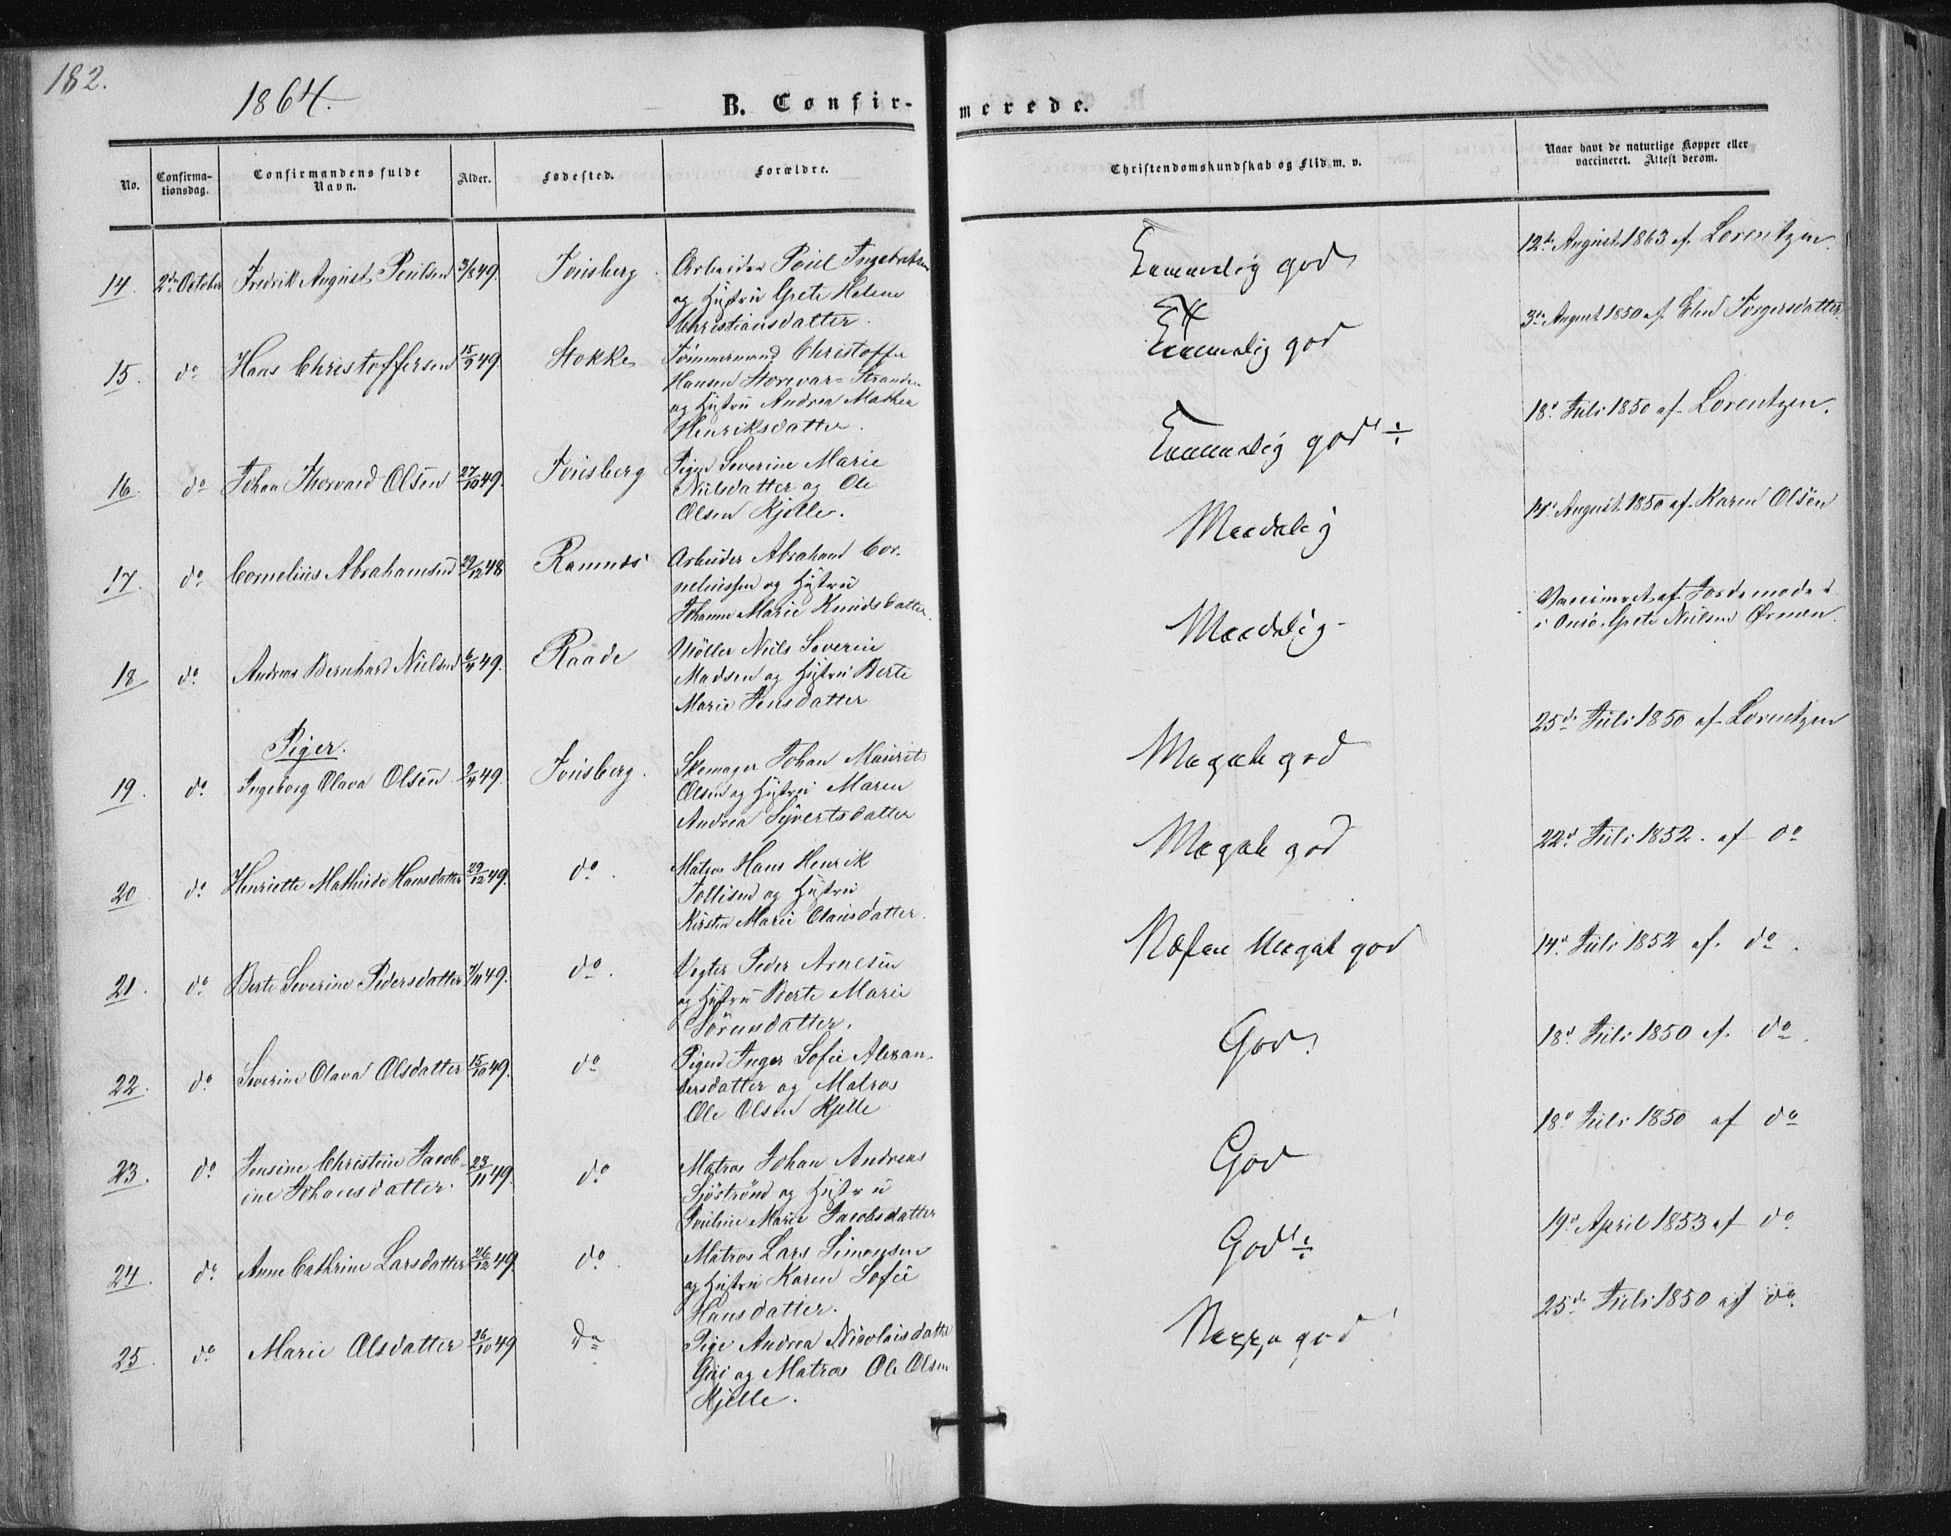 182.
1864.
B. Confir-
merede.
No.
Confirma-
tionsdag.
Confirmandens fulde
Navn.
Alder.
Fødested.
Forældre.
Christendomskundskab og Flid m. v.
Naar havt de naturlige Kopper eller
vaccineret. Attest derom.
14. 2den October Fredrik August Poulsen 3/8 49. Tønsberg. Arbeider Poul Ingebretsen
og Hustru Grete Helene
Christiansdatter.
Temmelig god
12te August 1863 af Lorentzen.
15. do Hans Christoffersen 15/9 49. Stokke Tømmermand Christoffer
Hansen Storevar-Stranden
og Hustru Andrea Mathea
Henriksdatter.
Temmelig god
3de August 1850 af Elen Torgersdatter.
16. do Johan Thorvald Olsen 27/10 49. Tønsberg Pigen Severine Marie
Nielsdatter og Ole
Olsen Kjelle.
Temmelig god ÷
18d Juli 1850 af Lorentzen.
17. do Cornelius Abrahamsen 29/12 48 Ramnes Arbeider Abraham Cor-
neliussen og Hustru
Johanne Marie Knudsdatter.
Maadelig
14d August 1850 af Karen Olsen
18 do Andreas Bernhard Nielsen 6/4 49. Raade Møller Niels Severin
Madsen og Hustru Berte
Marie Jensdatter
Maadelig
Vaccineret af Jordemoder
i Onsø Grete Nielsen Ørmen.
Piger.
19. do Ingeborg Olava Olsen 2/4 49. Tønsberg. Skomager Johan Maurits
Olsen og Hustru Maren
Andrea Syvertsdatter
Meget god
25de Juli 1850 af Lorentzen
20 do Henriette Mathilde Hansdatter 29/12 49. do. Matros Hans Henrik
Tollisen og Hustru
Kirsten Marie Olausdatter.
Meget god
22d Juli 1852. af do
21. do Berte Severine Pedersdatter 7/11 49. do. Vegter Peder Arnesen
og Hustru Berte Marie
Sørensdatter.
Næsten Meget god
14d Juli 1852 af. do.
22. do Severine Olava Olsdatter 15/10 49. do Pigen Inger Sofie Alexan-
dersdatter og Matros
Ole Olsen Kjelle
God.
18d Juli 1850 af. do.
23. do Jensine Christine Jacob-
ine Johansdatter. 23/11 49. do Matros Johan Andreas
Sjöström og Hustru
Pouline Marie Jacobsdatter
God
18d Juli 1850 af do
24. do Anne Cathrine Larsdatter 26/12 49. do. Matros Lars Simonsen
og Hustru Karen Sofie
Hansdatter.
God ÷
19d April 1853 af do
25. do Marie Olsdatter 16/10 49 Do Pige Andrea Nicolaisdatter
Gui og Matros Ole Olsen
Kjelle.
god
25de Juli 1850 af do.